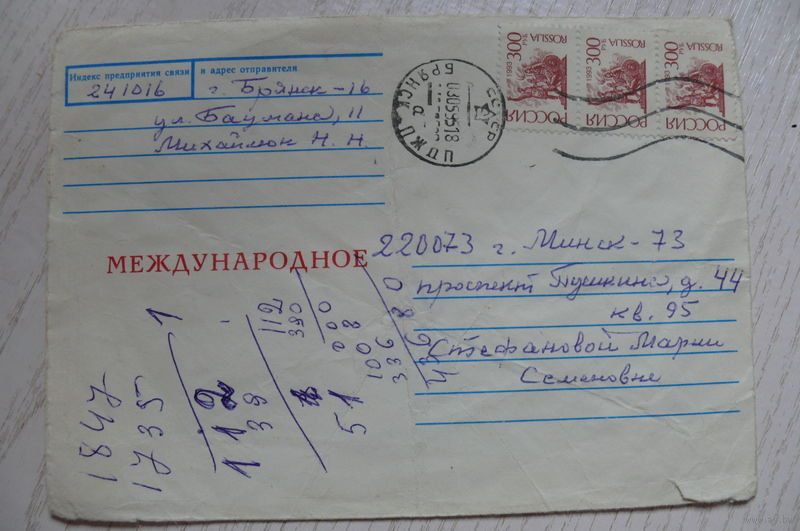 Индекс предприятия связи и адрес отправителя
241016 г. Брянск-16
ул. Баумана, 11
Михайлюк Н. Н.
РОССИЯ ROSSIJA 1993 300 РУБ
РОССИЯ ROSSIJA 1993 300 РУБ
РОССИЯ ROSSIJA 1993 300 РУБ
БРЯНСК
МЕЖДУНАРОДНОЕ
220073 г. Минск-73
проспект Пушкина, д. 44
кв. 95
Стефановой Марии
Семеновне
1847
1735
1
112
39
112
390
51
200
8
100
336
80